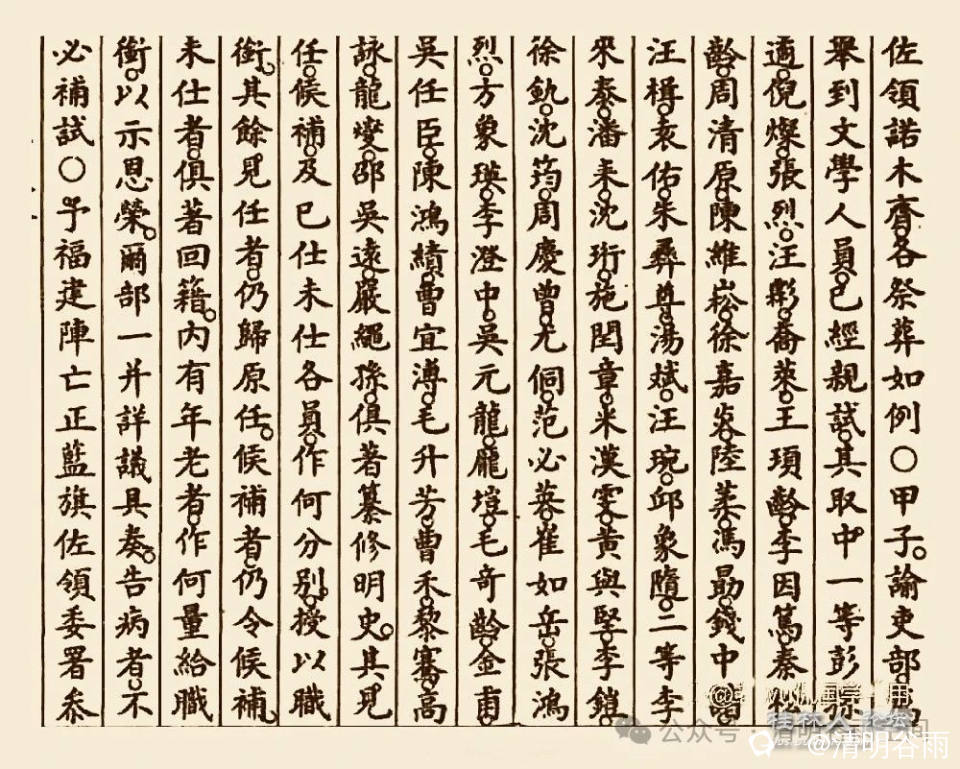 佐領諾木齊各祭葬如例○甲子諭吏部
舉到文學人員已經親試其取中一等彭孫
遹倪燦張烈汪霦喬萊王頊齡李因篤秦松
齡周清原陳維崧徐嘉炎陸葇馮勗錢中諧
汪楫袁佑朱彝尊湯斌汪琬邱象隨二等李
來泰潘耒沈珩施閏章米漢雯黃與堅李鎧
徐釚沈筠周慶曾尤侗范必英崔如岳張鴻
烈方象瑛李澄中吳元龍龐塏毛奇齡金甫
吳任臣陳鴻績曹宜溥毛升芳曹禾黎騫高
詠龍燮邵吳遠嚴繩孫俱著纂修明史其見
任候補及已仕未仕各員作何分別授以職
銜其餘見任者仍歸原任候補者仍令候補
未仕者俱著回籍內有年老者作何量給職
銜以示恩榮爾部一并詳議具奏告病者不
必補試○予福建陣亡正藍旗佐領委署叅
桂林人论坛
公众号
@清明谷雨